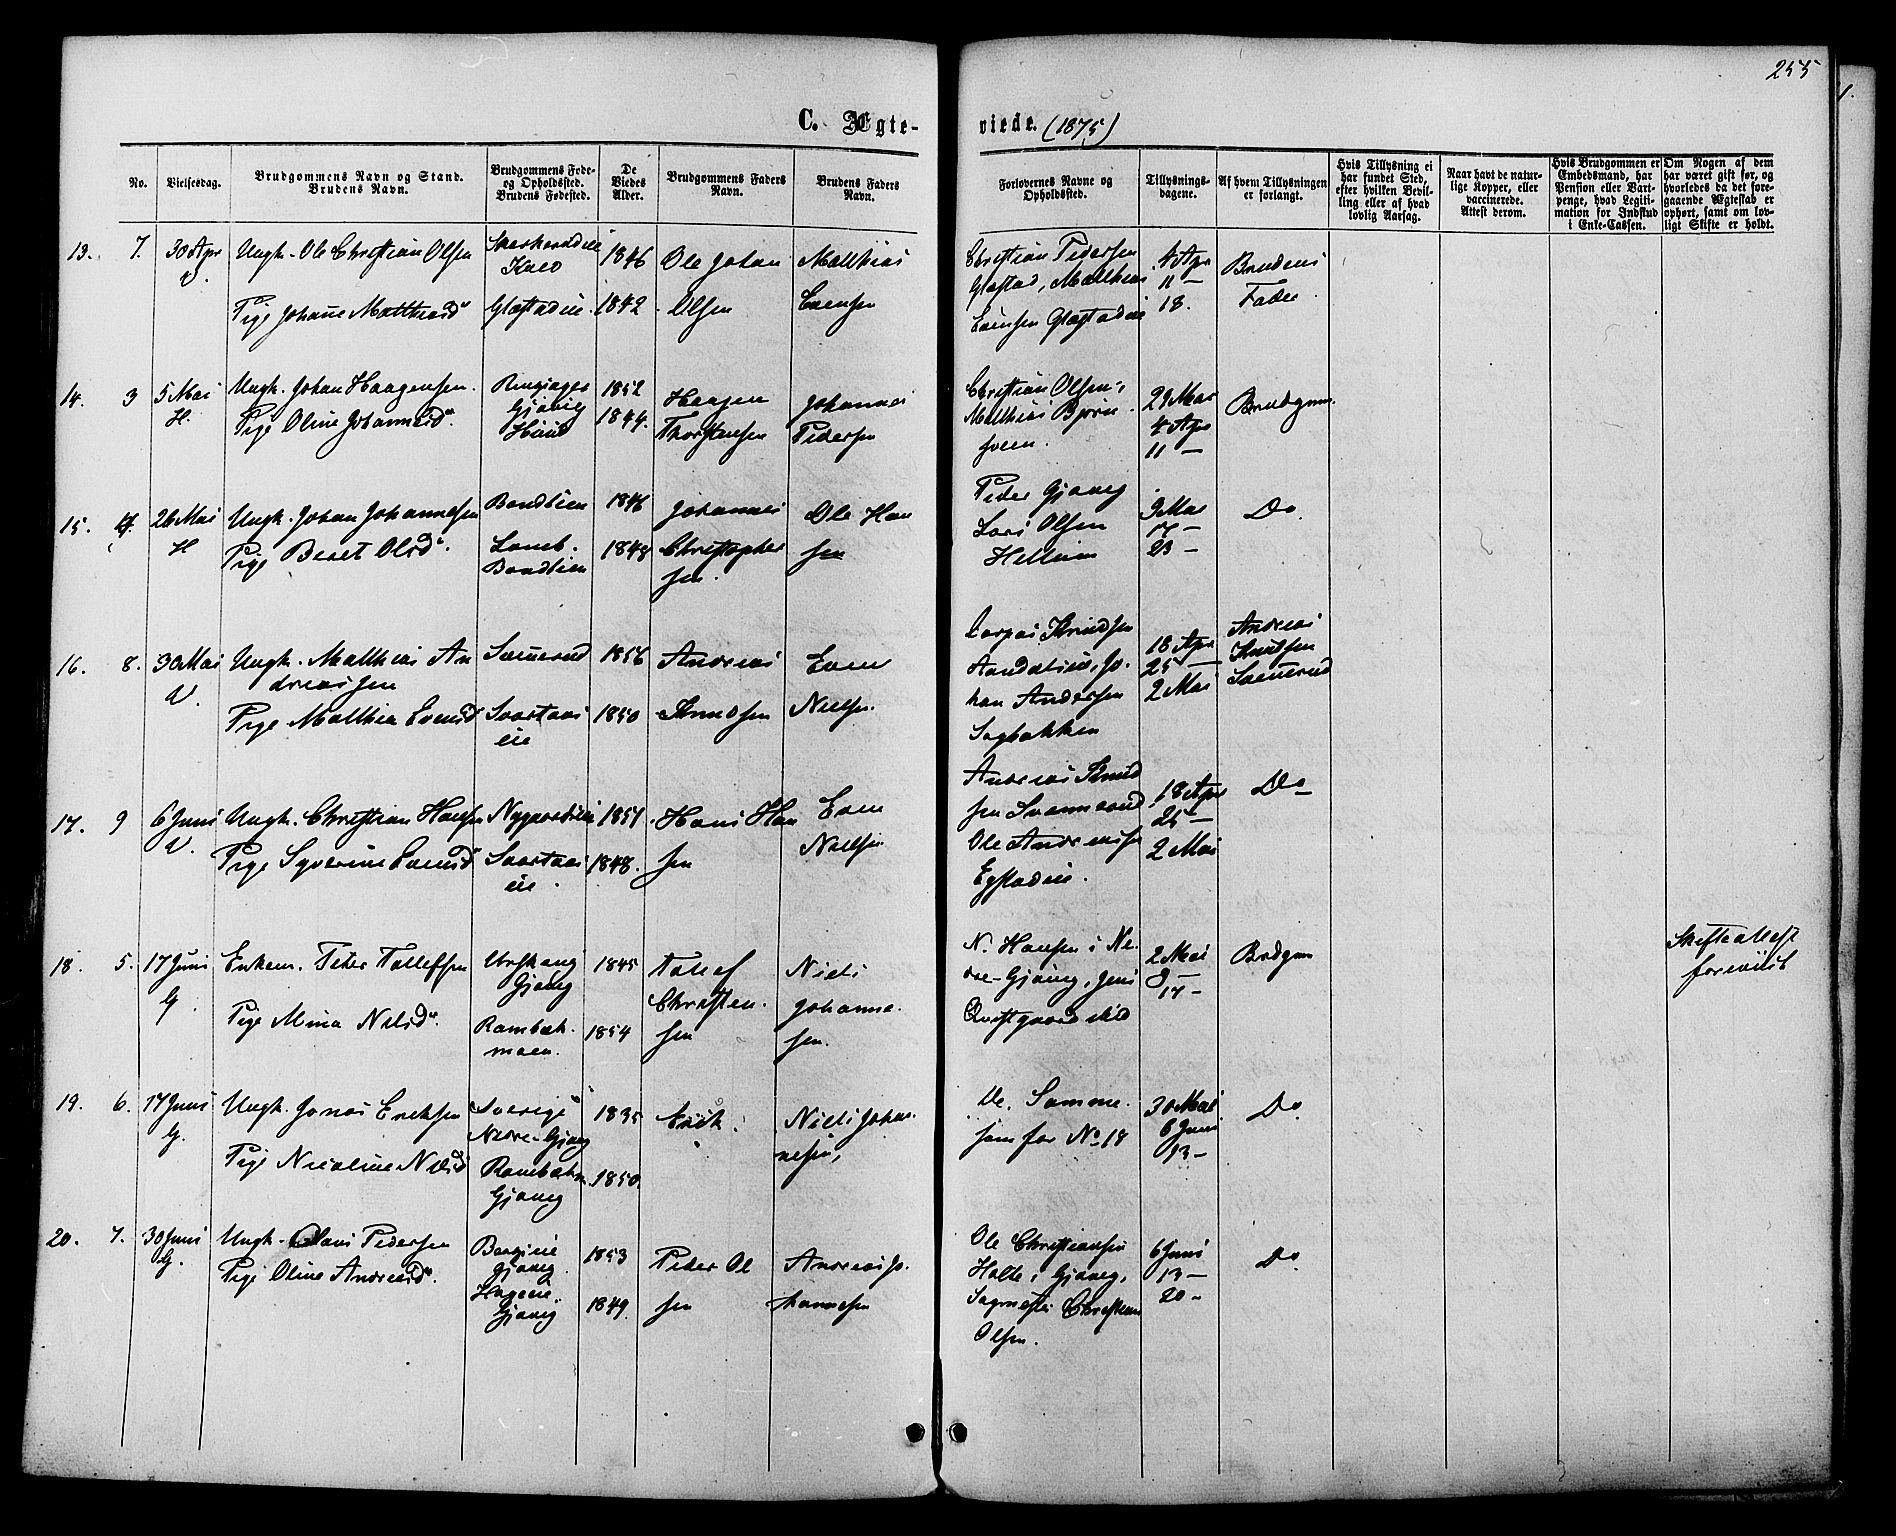 255
C. Ægte-
viede. (1875)
No.
Vielsesdag.
Brudgommens Navn og Stand.
Brudens Navn.
Brudgommens Føde-
og Opholdssted.
Brudens Fødested.
De
Viedes
Alder.
Brudgommens Faders
Navn.
Brudens Faders
Navn.
Forlovernes Navne og
Opholdssted.
Tillysnings-
dagene.
Af hvem Tillysningen
er forlangt.
Hvis Tillysning ei
har fundet Sted,
efter hvilken Bevil-
ling eller af hvad
lovlig Aarsag.
Naar havt de natur-
lige Kopper, eller
vaccinerede.
Attest derom.
Hvis Brudgommen er
Embedsmand, har
Pension eller Vart-
penge, hvad Legiti-
mation for Indskud
i Enke-Cassen.
Om Nogen af dem
har været gift før, og
hvorledes da det fore-
gaaende Ægteskab er
ophørt, samt om lov-
ligt Skifte er holdt.
13. 7. 30 Apr
V.
Ungk. Ole Christian Olsen
Pige Johane Matthiasd
Glæstadeie
1846
1842
Ole Johan
Olsen
Matthias
Evensen
Christian Pedersen
Glæstad, Matthias
Evensen Glæstadeie
4 Apr
11 —
18.
Brudens
Fader.
14. 3 5 Mai
H.
Ungk. Johan Haagensen
Pige Oline Johannesd
Gjøvig
1852
1844.
Haagen
Thorstensen
Johannes
Pedersen
Christian Olsen
Matthias Bjørn
sveen.
29 Mar
4 Apr
11 —
Brudgom.
15. 4. 26 Mai
H
Ungk. Johan Johannesen
Pige Beret Olsd
Bondlien
Bondlien
1846
1848
Johannes
Christopher
sen.
Ole Han
sen
Peder Gjøvig
Lars Olsen
9 Mai
17 —
23 —
Do
16. 8. 30 Mai
V.
Ungk. Matthias An
dreassen
Pige Matthea Evensd
Svartaas
eie
1856
1850
Andreas
Knudsen
Even
Nielsen.
Knudsen
han Andersen
Sagbakken
18 Apr
25 —
2 Mai
Andreas
Knudsen
17. 9 6 Juni
V.
Ungk. Christian Hansen
Pige Syverine Evensd
Nygaardseie
Svartaas
eie.
1851
1848.
Hans Han
sen
Even
Nielsen
Andreas Knud
sen
Ole Andreassen
Egstadeie.
18 Apr
25 —
2 Mai
Do
18. 5. 17 Juni
G.
Enkem. Peter Tollefsen
Pige Mina Nilsd
Urskoug
Gjøvig
Rambæk-
moen.
1845
1854
Tollef
Christen.
sen
Niels
Johanne.
sen.
N. Hansen i Ne.
dre-Gjøvig, Jens
2 Mai
9 —
17 —
Brdgom
Skifteattest
foreviist
19. 6. 17 Juni
G.
Ungk. Jonas Eriksen
Pige Nicoline Nilsd
Sverige
Nedre-Gjøvig
Rambækm.
Gjøvig
1835
1850.
Erik.
Niels Johan.
nesen,
De Samme.
som for No 18
30 Mai
6 Juni
13 —
Do
20. 7. 30 Juni
G.
Ungk. Olaus Pedersen
Pige Oline Andreasd
Bergseie
Gjøvig
Hageeie
Gjøvig
1853
1849.
Peder Ol
sen
Andreas Jo.
hannesen
Ole Christiansen
Holte i Gjøvig,
Sagmester Christian
Olsen.
6 Juni
13 —
20 —
Do